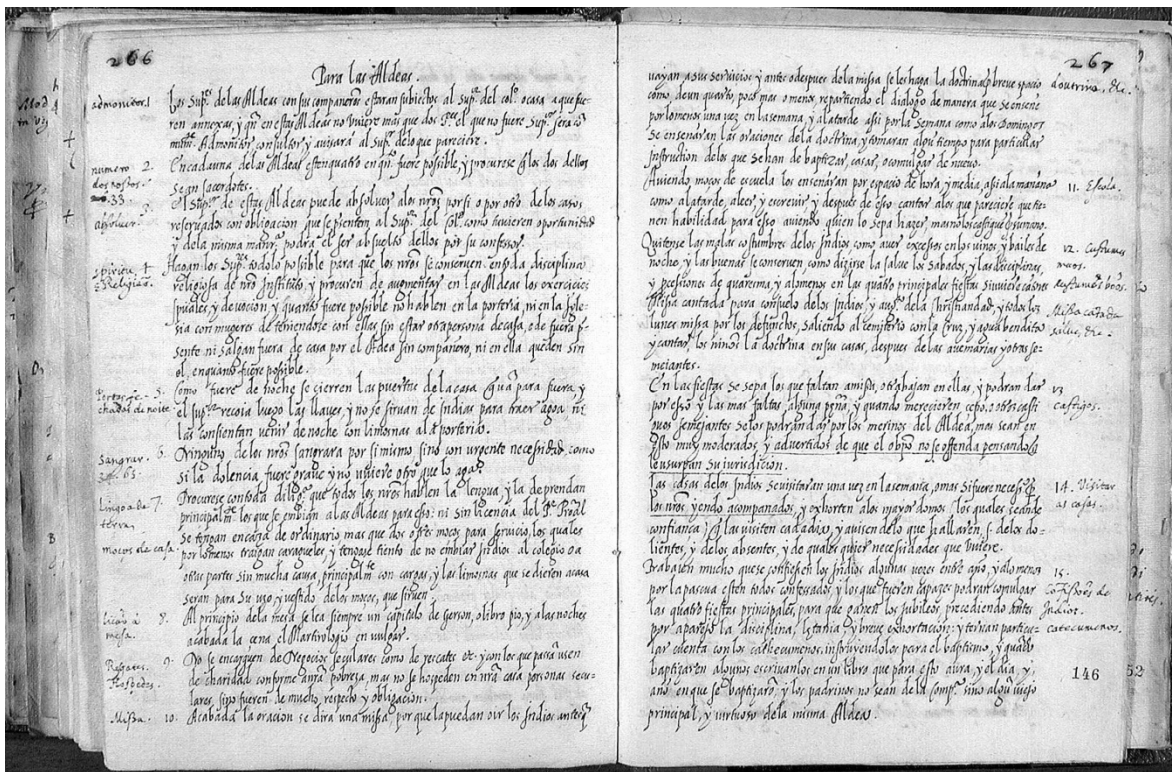 266
Para las Aldeas.
admonitor. 1
Los Sup.res de las Aldeas con sus compañeros estaran subiectos al Sup.or del col.o o casa a que fue-
ren annexas, y qn en estas Aldeas no uviere mas que dos P.es el que no fuere Sup.or sera co
Admonitor consultor y avisará al Sup.or de lo que pareciere.
numero 2.
dos nossos.
33.
En cada una de las Aldeas esten quatro en qto fuere possible, y procurese q los dos dellos
sean sacerdotes.
absolver. 3.
El Sup.or de estas Aldeas puede absolver a los nros por si o por otro de los casos
reservados con obligacion que se presenten al Sup.or del Col.o como tuvieren oportunidad
y de la misma manra podrá el ser absuelto dellos por su confessor.
4
Religião.
Hagan los Sup.res todo lo possible para que los nros se conserven en la disciplina
religiosa de nro Instituto, y procuren de augmentar en las Aldeas los exercicios
spirituales, y devocion, y quanto fuere possible no hablen en la porteria, ni en la Igle-
sia con mugeres deteniendose con ellas sin estar otra persona de casa, o de fuera p-
sente ni salgan fuera de casa por el Aldea sin compañero, ni en ella queden sin
el, en quanto fuere possible.
5.
chados de noite
Como fuere de noche se cierren las puertas de la casa para fuera, y
el sup.or recoia luego las llaves, y no se sirvan de indias para traer agoa ni
las consientan venir de noche con limosnas a la porteria.
Sangrar. 6.
65.
Ninguno de los nros sangrara por si mismo sino con urgente necessidad como
si la dolencia fuere grave y no uviere otro que lo aga.
Lingoa da 7.
terra.
Procurese con toda dilig.a que todos los nros hablen la lengua, y la deprendan
principalm.te los que se embian a las Aldeas para esso: ni sin licencia del P.e Provl
moços de casa.
se tengan en casa de ordinario mas que dos o tres moços para servicio, los quales
por lo menos traigan caraguelles, y tengase tiento de no embiar Indios al colegio o a
otras partes sin mucha causa, principalm.te con cargas, y las limosnas que se dieren a casa
seran para su uso, y vestido de los moços, que sirven.
Lição á 8.
mesa.
Al principio de la mesa se lea siempre un capitulo de Gerson, o libro pio, y a las noches
acabada la cena el Martirologio en vulgar.
Resgates. 9.
Hospedes.
No se encarguen de Negocios seculares como de rescates etc. y con los que passã usen
de charidad conforme a nra pobreza, mas no se hospeden en nra casa personas secu-
lares, sino fueren de mucho respecto y obligacion.
Missa. 10.
Acabada la oracion se dira una missa por que la puedan oir los Indios antes q
267
vayan a sus servicios y antes o despues de la missa se les haga la doctrina p breve spacio
doutrina, &c.
como de un quarto, poco mas o menos, repartiendo el dialogo de manera que se enseñe
por lo menos una vez en la semana, y a la tarde assi por la semana como a los Domingos
se enseñaran las oraciones de la doctrina, y tomaran algu tiempo para particular
instruction de los que se han de baptizar, casar, o comulgar de nuevo.
11. Escola.
Aviendo moços de escuela los enseñaran por espacio de hora, y media, assi a la mañana
como a la tarde, a leer, y escrevir, y despues de esso cantar a los que pareciere que tie-
nen habilidad para esso aviendo quien lo sepa hazer, mas no los castigue por su mano.
12. Custumes
Quitense las malas costumbres de los Indios como aver excessos en los vinos, y bailes de
noche, y las buenas se conserven, como dizirse la salve los sabados, y las disciplinas,
y processiones de quaresma, y a lo menos en las quatro principales fiestas si uviere cãtores
Missa cãtada
salve, &c.
Missa cantada para consuelo de los Indios, y augto de la christiandad, y todos los
lunes missa por los defunctos, saliendo al cemiterio con la Cruz, y agoa bendita
y cantar, los niños la doctrina en sus casas, despues de las avemarias y otras se-
meiantes.
13
castigos.
En las fiestas se sepa los que faltan a missa, o trabajan en ellas, y podran dar
por esso y las mas faltas, alguna pena, y quando merecieren cepo, o otros casti
gos semejantes se los podran dar por los merinos del Aldea, mas sean en
esto muy moderados, y advertidos de que el obpo no se offenda pensando q
le usurpan su jurisdicion.
14. Visitar
as casas.
Las casas de los Indios se visitaran una vez en la semana, o mas si fuere necess.o p
los nros yendo acompañados, y exhorten a los mayordomos (los quales sean de
confiança) q las visiten cada dia, y avisen de lo que hallaren, s. de los do-
lientes, y de los absentes, y de quales quier necessidades que huviere.
15.
Cõfissões de
Indios.
catecumenos.
Trabajen mucho que se confiessen los Indios algunas vezes entre año, y a lo menos
por la pascua esten todos confessados, y los que fueren capazes podran comulgar
las quatro fiestas principales, para que ganen los jubileos, precediendo antes
por aparejo la disciplina, letania, y breve exhortacion: y ternan particu-
lar cuenta con los cathecumenos, instruyendolos para el baptismo, y quãdo
baptizaren algunos escrivanlos en un libro que para esto avra, y el dia, y
año en que se baptizaron, y los padrinos no sean de la Comp.a sino algu viejo
principal, y virtuoso de la misma Aldea.
146
52